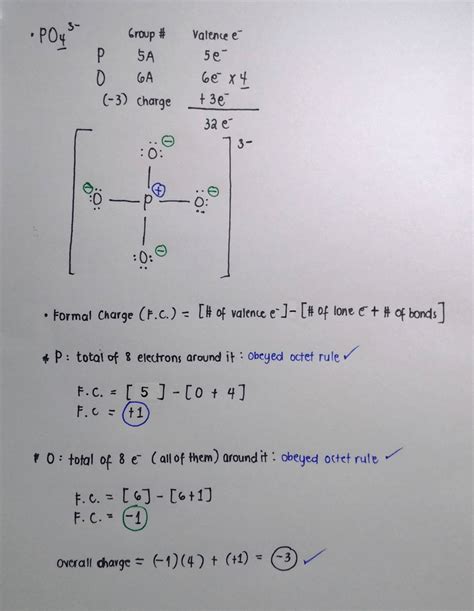 • PO₄³⁻ Group # Valence e⁻
P 5A 5e⁻
O 6A 6e⁻ x 4
(-3) charge + 3e⁻
32 e⁻
3-
⊖
:O:
⊖ ⊕ ⊖
:O — P — O:
:O: ⊖
• Formal Charge (F.C.) = [# of valence e⁻] - [# of lone e⁻ + # of bonds]
* P: total of 8 electrons around it : obeyed octet rule ✓
F.C. = [ 5 ] - [0 + 4]
F.C = +1
* O: total of 8 e⁻ (all of them) around it : obeyed octet rule ✓
F.C. = [6] - [6+1]
F.C. = -1
Overall charge = (-1)(4) + (+1) = -3 ✓